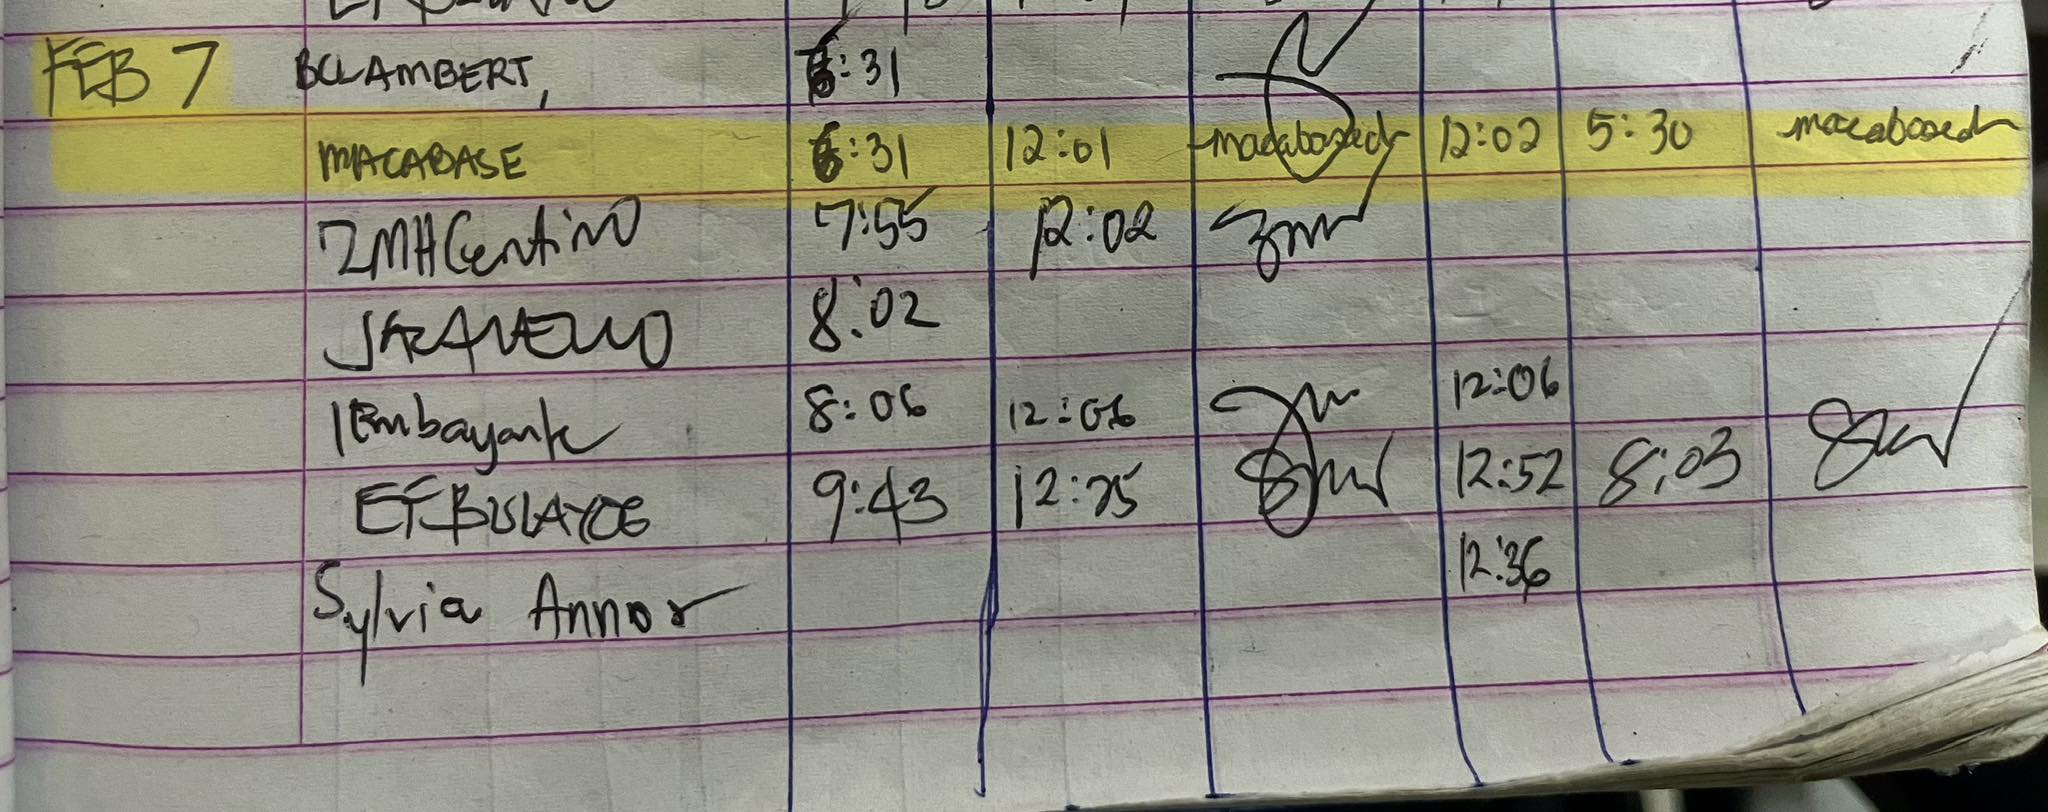 FEB 7 BCLAMBERT, :31
MACABASE :31 12:01 macabased 12:02 5:30 macabased
ZMHCentino 7:55 12:02
8:02
8:06 12:06 12:06
EFBULAYOG 9:43 12:25 12:52 8:03
Sylvia Annor 12:36